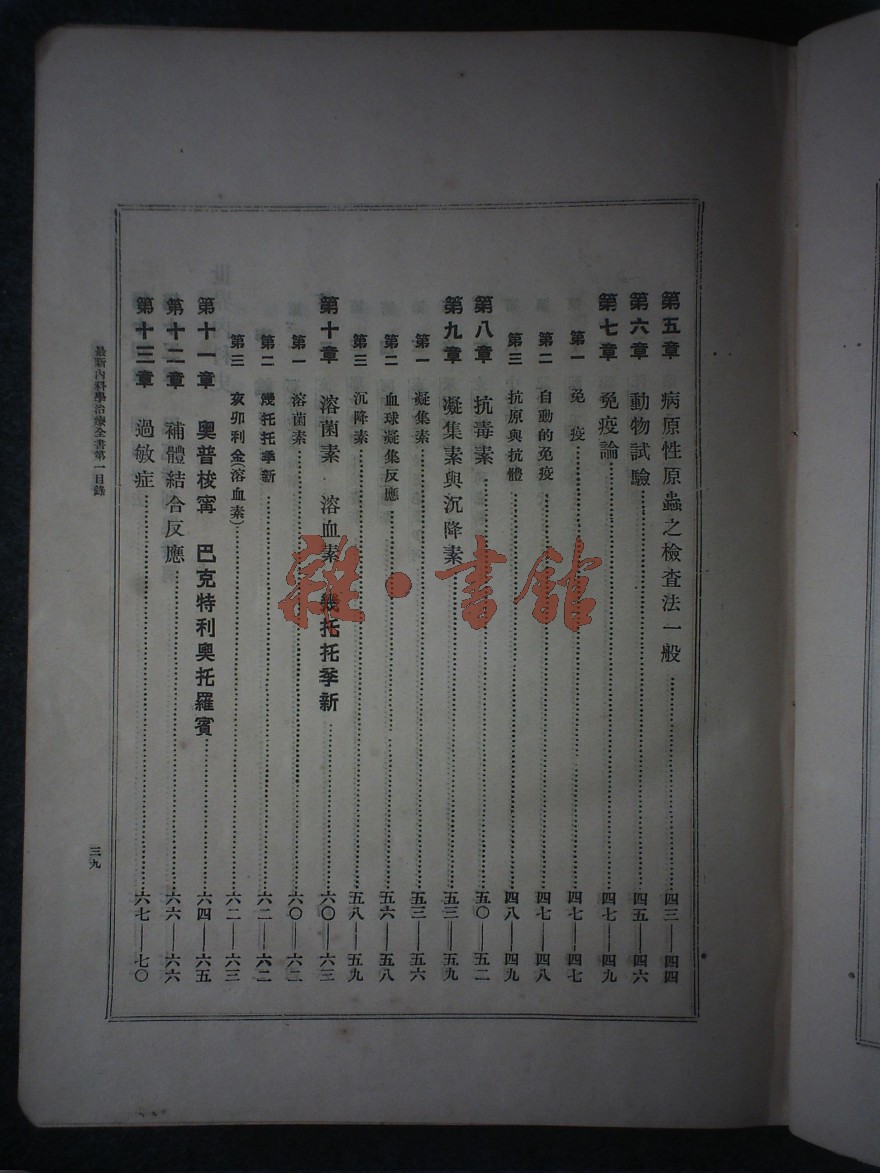 第五章　病原性原蟲之檢查法一般……四三——四四
第六章　動物試驗……四五——四六
第七章　免疫論……四七——四九
第一　免　疫……四七——四七
第二　自動的免疫……四七——四八
第三　抗原與抗體……四八——四九
第八章　抗毒素……五〇——五二
第九章　凝集素與沉降素……五三——五九
第一　凝集素……五三——五六
第二　血球凝集反應……五六——五八
第三　沉降素……五八——五九
第十章　溶菌素　溶血素　幾托托季新……六〇——六三
第一　溶菌素……六〇——六二
第二　幾托托季新……六二——六二
第三　亥卯利金(溶血素)……六二——六三
第十一章　奧普梭甯　巴克特利奧托羅賓……六四——六五
第十二章　補體結合反應……六六——六六
第十三章　過敏症……六七——七〇
最新內科學治療全書第一目錄
三九
雜·書館